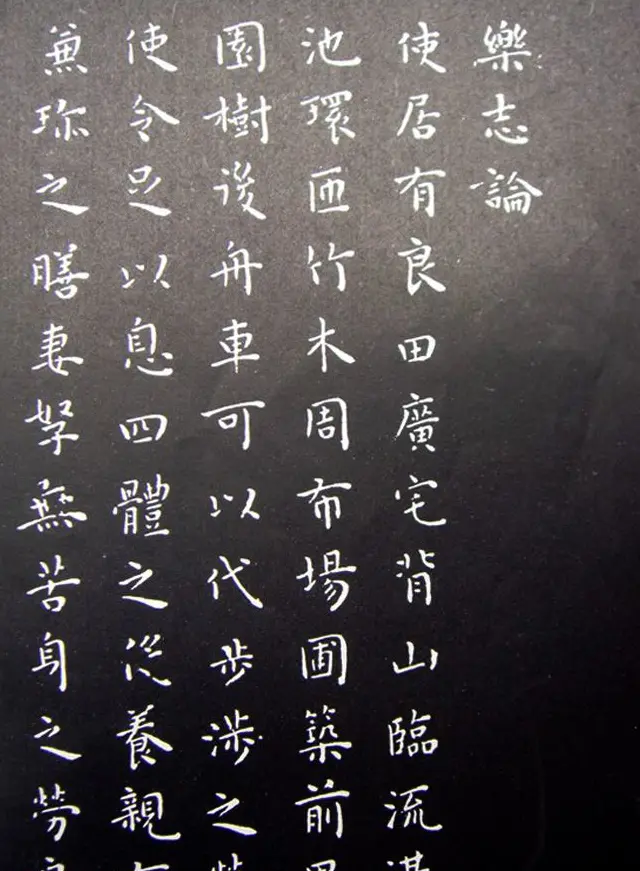 樂志論
使居有良田廣宅背山臨流
池環匝竹木周布場圃築前
園樹後舟車可以代步涉之
使令足以息四體之役養親
兼珍之膳妻孥無苦身之勞